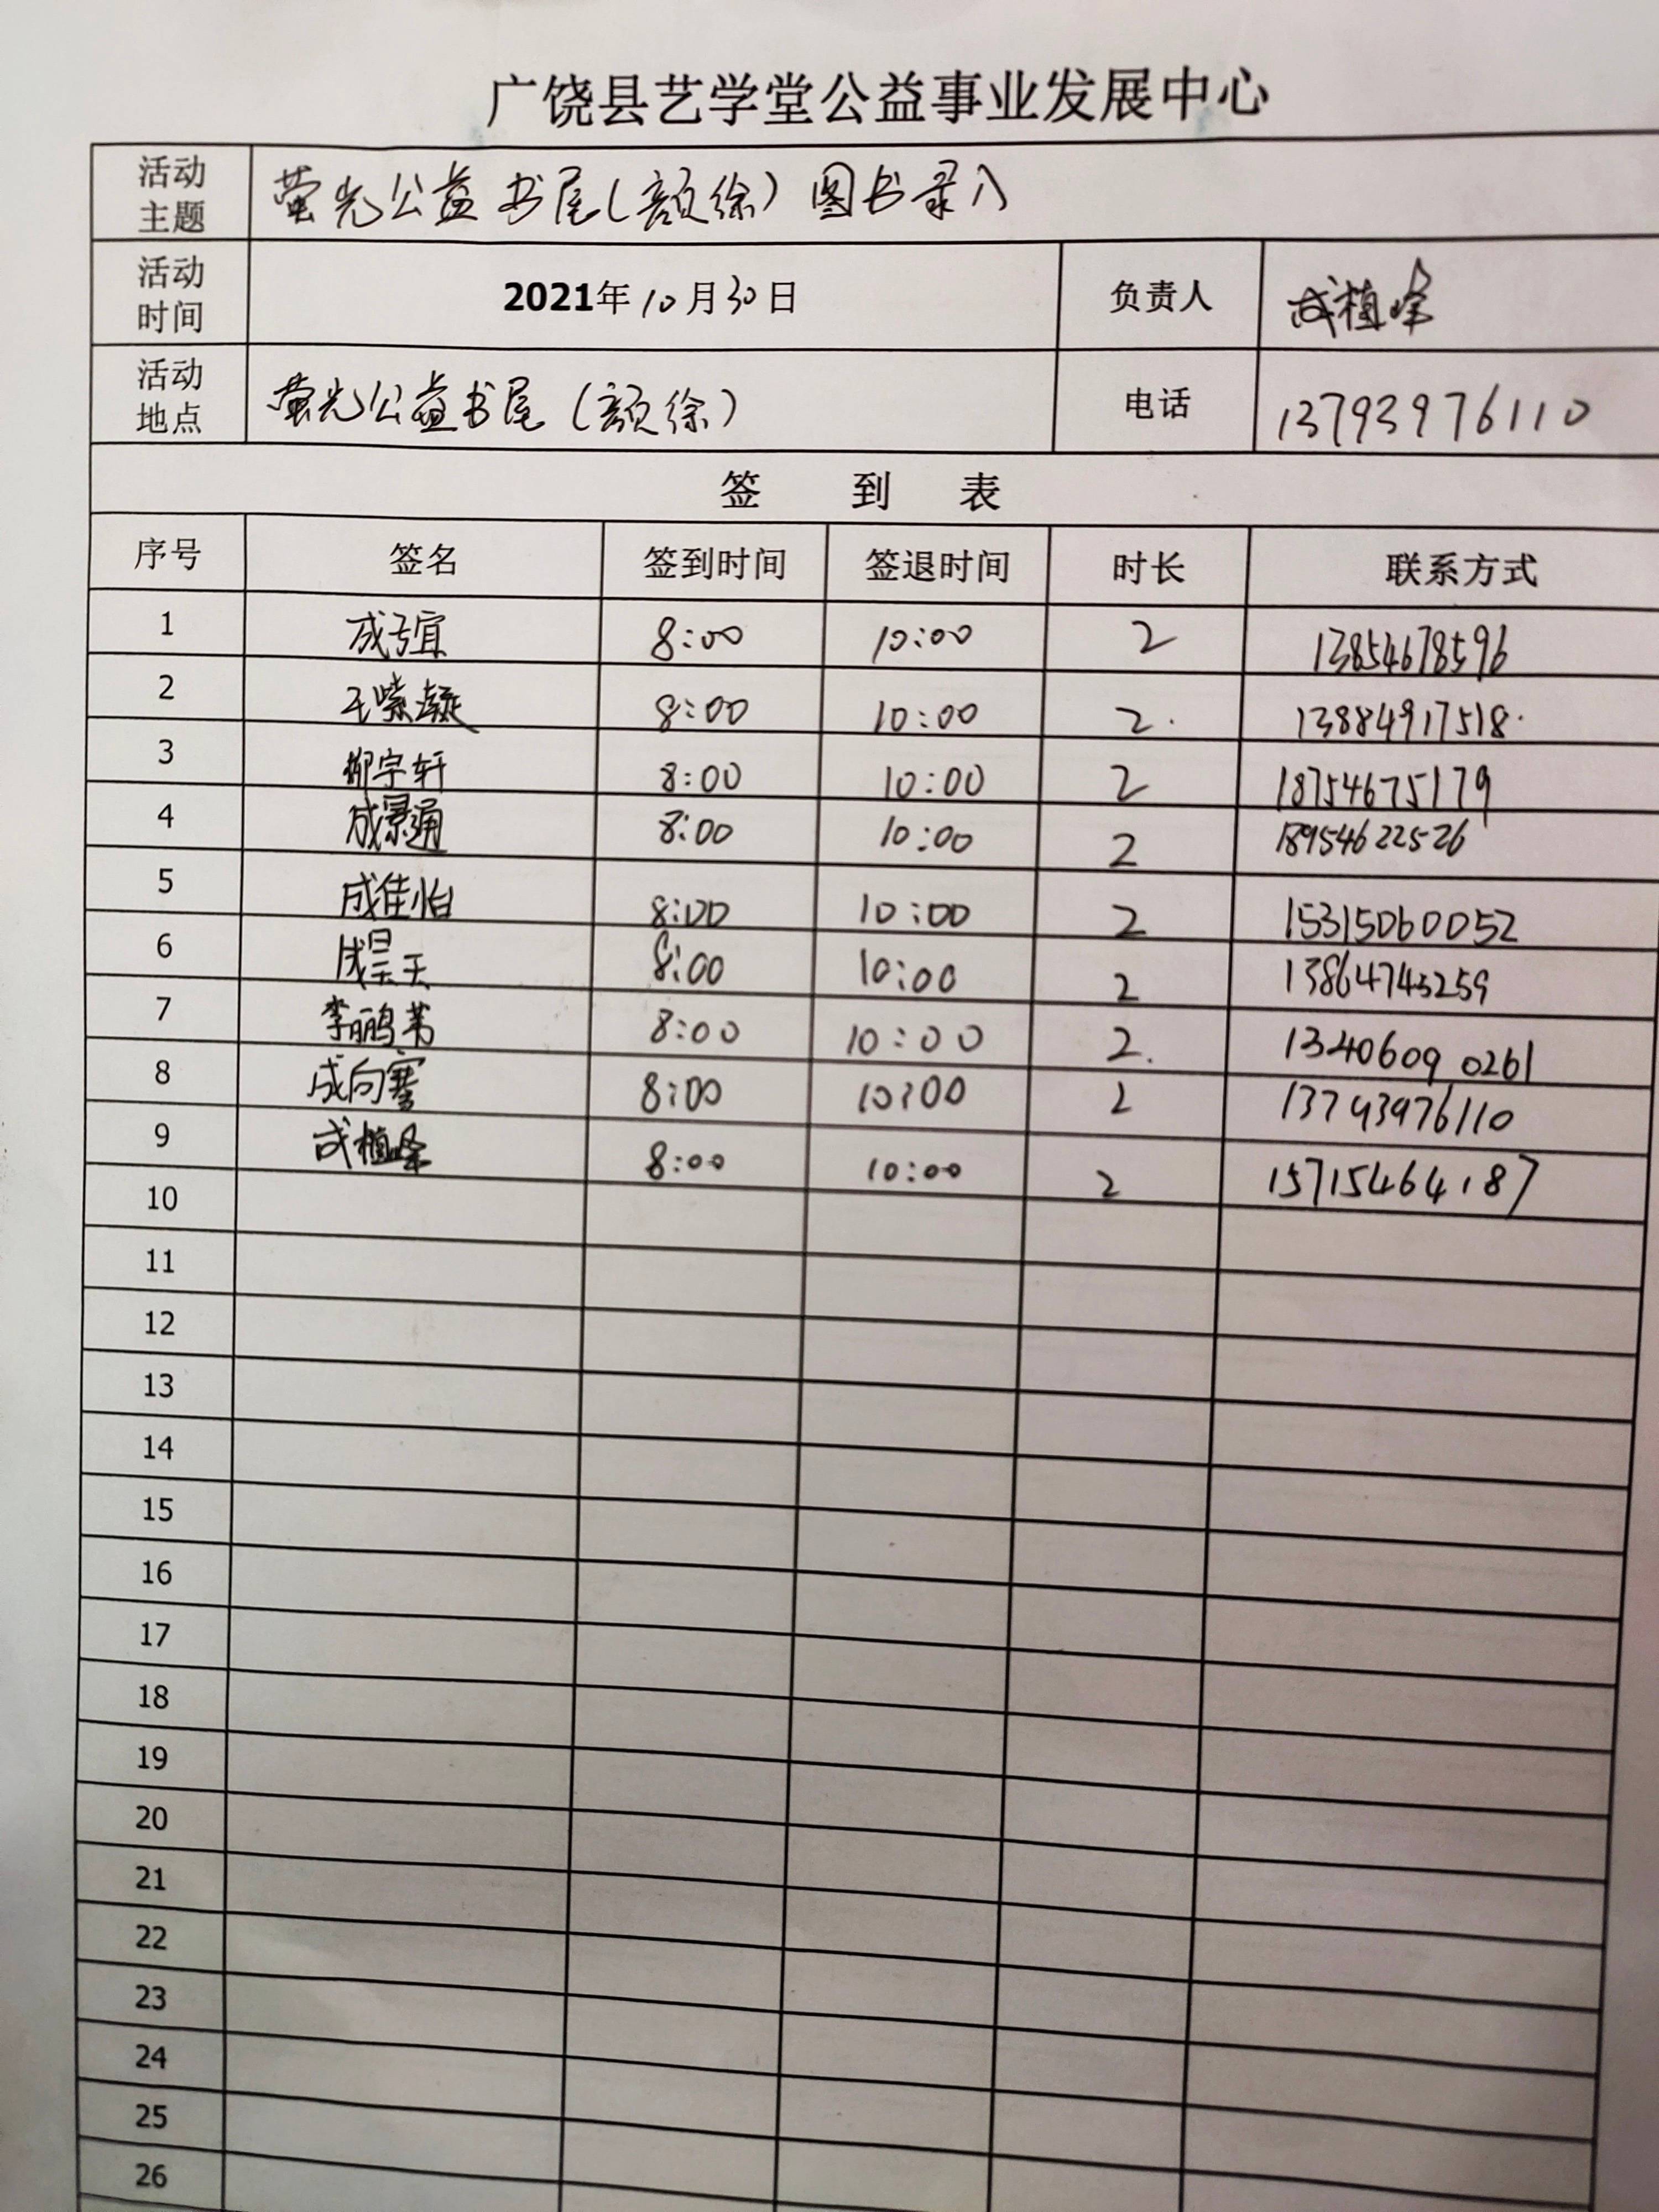 广饶县艺学堂公益事业发展中心
活动主题 萤光公益书屋(颜徐)图书录入
活动时间 2021年10月30日 负责人 成植峰
活动地点 萤光公益书屋(颜徐) 电话 13793976110
签 到 表
序号 签名 签到时间 签退时间 时长 联系方式
1 8:00 10:00 2 13854678596
2 王紫凝 8:00 10:00 2. 13884917518.
3 柳宇轩 8:00 10:00 2 18754675179
4 成景通 8:00 10:00 2 18954622526
5 成佳怡 8:00 10:00 2 15315060052
6 成昊天 8:00 10:00 2 13864745259
7 8:00 10:00 2. 13406090261
8 8:00 10:00 2 13793976110
9 成植峰 8:00 10:00 2 15715464187
10
11
12
13
14
15
16
17
18
19
20
21
22
23
24
25
26